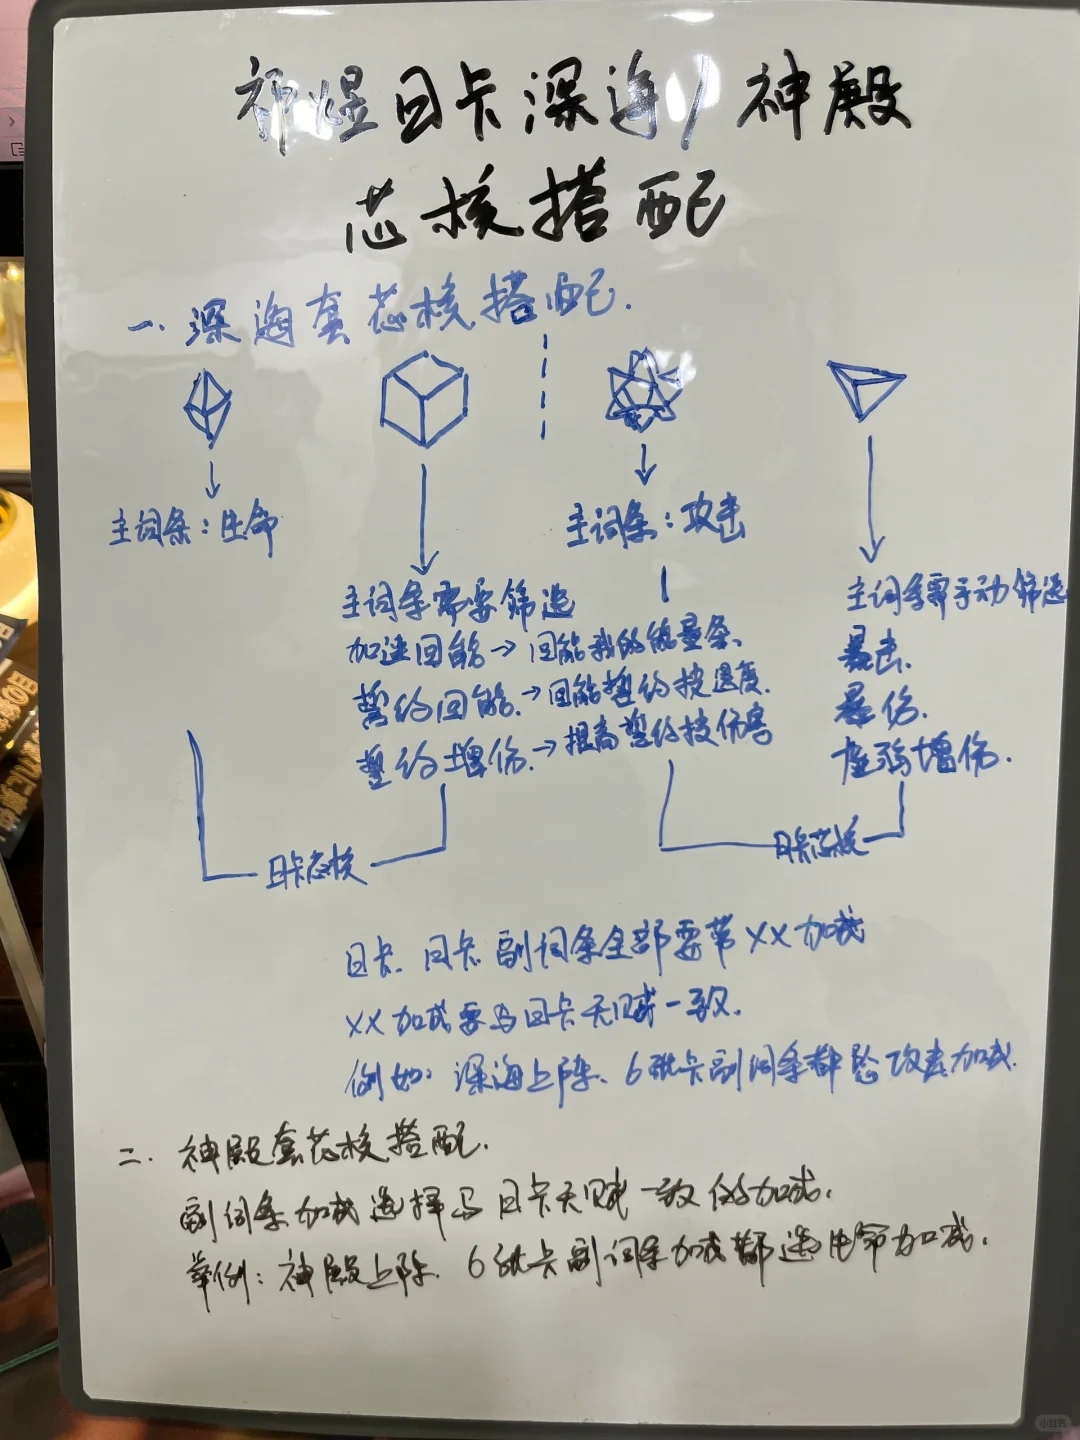 神煜日卡深海/神殿
芯核搭配
一.深海套芯核搭配.
主词条:生命
主词条:攻击
主词条需要筛选
加速回能→回能我的能量条、
誓约回能.→回能誓约技进度.
誓约增伤.→提高誓约技伤害
主词条需手动筛选
暴击.
暴伤.
虚弱增伤.
日卡芯核
月卡芯核
日卡.月卡副词条全部要带XX加成
XX加成要与日卡天赋一致.
例如:深海上阵、6张卡副词条都选攻击加成.
二.神殿套芯核搭配.
副词条加成选择与日卡天赋一致的加成.
举例:神殿上阵.6张卡副词条加成都选生命加成.
小红书